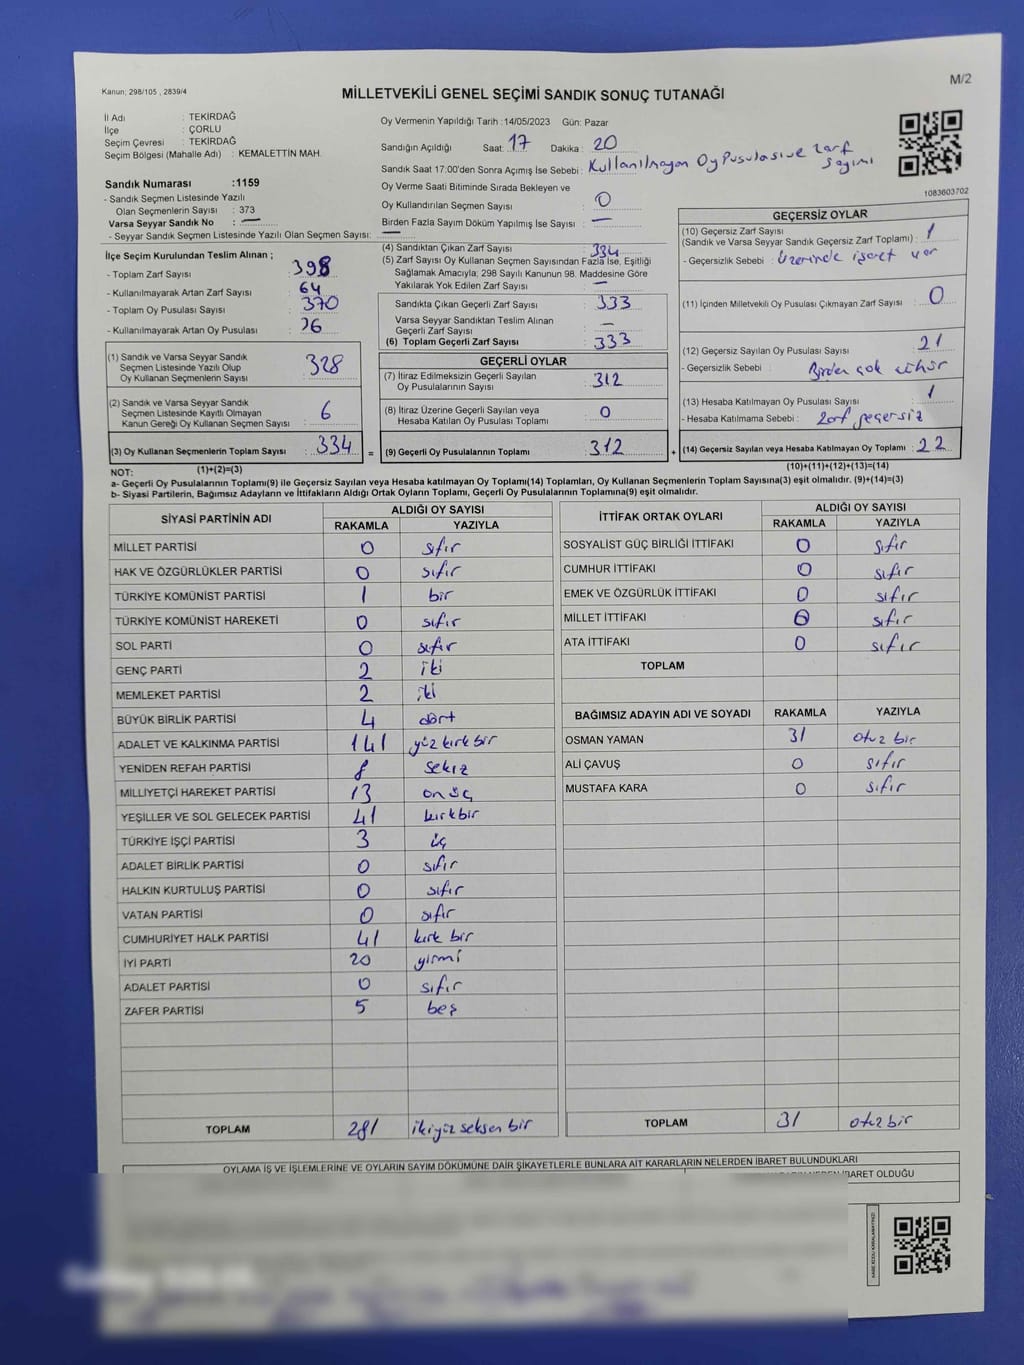 Kanun; 298/105 , 2839/4
M/2
MİLLETVEKİLİ GENEL SEÇİMİ SANDIK SONUÇ TUTANAĞI
İl Adı : TEKİRDAĞ
İlçe : ÇORLU
Seçim Çevresi : TEKİRDAĞ
Seçim Bölgesi (Mahalle Adı) : KEMALETTİN MAH.
Sandık Numarası :1159
- Sandık Seçmen Listesinde Yazılı
Olan Seçmenlerin Sayısı : 373
Varsa Seyyar Sandık No : —
- Seyyar Sandık Seçmen Listesinde Yazılı Olan Seçmen Sayısı: —
Oy Vermenin Yapıldığı Tarih : 14/05/2023 Gün: Pazar
Sandığın Açıldığı Saat: 17 Dakika : 20
Sandık Saat 17:00'den Sonra Açımış İse Sebebi : Kullanılmayan Oy Pusulası ve zarf
sayımı
Oy Verme Saati Bitiminde Sırada Bekleyen ve
Oy Kullandırılan Seçmen Sayısı : 0
Birden Fazla Sayım Döküm Yapılmış İse Sayısı : —
1083603702
İlçe Seçim Kurulundan Teslim Alınan ;
- Toplam Zarf Sayısı : 398
- Kullanılmayarak Artan Zarf Sayısı : 64
- Toplam Oy Pusulası Sayısı : 370
- Kullanılmayarak Artan Oy Pusulası :
(1) Sandık ve Varsa Seyyar Sandık
Seçmen Listesinde Yazılı Olup
Oy Kullanan Seçmenlerin Sayısı : 328
(2) Sandık ve Varsa Seyyar Sandık
Seçmen Listesinde Kayıtlı Olmayan
Kanun Gereği Oy Kullanan Seçmen Sayısı : 6
(3) Oy Kullanan Seçmenlerin Toplam Sayısı : 334
(4) Sandıktan Çıkan Zarf Sayısı : 334
(5) Zarf Sayısı Oy Kullanan Seçmen Sayısından Fazla İse, Eşitliği
Sağlamak Amacıyla; 298 Sayılı Kanunun 98. Maddesine Göre
Yakılarak Yok Edilen Zarf Sayısı : —
Sandıkta Çıkan Geçerli Zarf Sayısı : 333
Varsa Seyyar Sandıktan Teslim Alınan
Geçerli Zarf Sayısı : —
(6) Toplam Geçerli Zarf Sayısı : 333
GEÇERLİ OYLAR
(7) İtiraz Edilmeksizin Geçerli Sayılan
Oy Pusulalarının Sayısı : 312
(8) İtiraz Üzerine Geçerli Sayılan veya
Hesaba Katılan Oy Pusulası Toplamı : 0
= (9) Geçerli Oy Pusulalarının Toplamı : 312
GEÇERSİZ OYLAR
(10) Geçersiz Zarf Sayısı
(Sandık ve Varsa Seyyar Sandık Geçersiz Zarf Toplamı) : 1
- Geçersizlik Sebebi : Üzerinde işaret var
(11) İçinden Milletvekili Oy Pusulası Çıkmayan Zarf Sayısı : 0
(12) Geçersiz Sayılan Oy Pusulası Sayısı : 21
- Geçersizlik Sebebi : Birden çok mühür
(13) Hesaba Katılmayan Oy Pusulası Sayısı : 1
- Hesaba Katılmama Sebebi : Zarf geçersiz
+ (14) Geçersiz Sayılan veya Hesaba Katılmayan Oy Toplamı : 22
NOT: (1)+(2)=(3)
(10)+(11)+(12)+(13)=(14)
a- Geçerli Oy Pusulalarının Toplamı(9) ile Geçersiz Sayılan veya Hesaba Katılmayan Oy Toplamı(14) Toplamları, Oy Kullanan Seçmenlerin Toplam Sayısına(3) eşit olmalıdır. (9)+(14)=(3)
b- Siyasi Partilerin, Bağımsız Adayların ve İttifakların Aldığı Ortak Oyların Toplamı, Geçerli Oy Pusulalarının Toplamına(9) eşit olmalıdır.
SİYASİ PARTİNİN ADI ALDIĞI OY SAYISI
RAKAMLA YAZIYLA
MİLLET PARTİSİ 0 sıfır
HAK VE ÖZGÜRLÜKLER PARTİSİ 0 sıfır
TÜRKİYE KOMÜNİST PARTİSİ 1 bir
TÜRKİYE KOMÜNİST HAREKETİ 0 sıfır
SOL PARTİ 0 sıfır
GENÇ PARTİ 2 iki
MEMLEKET PARTİSİ 2 iki
BÜYÜK BİRLİK PARTİSİ 4 dört
ADALET VE KALKINMA PARTİSİ 141 yüz kırk bir
YENİDEN REFAH PARTİSİ 8 sekiz
MİLLİYETÇİ HAREKET PARTİSİ 13 on üç
YEŞİLLER VE SOL GELECEK PARTİSİ 41 kırk bir
TÜRKİYE İŞÇİ PARTİSİ 3 üç
ADALET BİRLİK PARTİSİ 0 sıfır
HALKIN KURTULUŞ PARTİSİ 0 sıfır
VATAN PARTİSİ 0 sıfır
CUMHURİYET HALK PARTİSİ 41 kırk bir
İYİ PARTİ 20 yirmi
ADALET PARTİSİ 0 sıfır
ZAFER PARTİSİ 5 beş
TOPLAM 281 iki yüz seksen bir
İTTİFAK ORTAK OYLARI ALDIĞI OY SAYISI
RAKAMLA YAZIYLA
SOSYALİST GÜÇ BİRLİĞİ İTTİFAKI 0 sıfır
CUMHUR İTTİFAKI 0 sıfır
EMEK VE ÖZGÜRLÜK İTTİFAKI 0 sıfır
MİLLET İTTİFAKI 0 sıfır
ATA İTTİFAKI 0 sıfır
TOPLAM
BAĞIMSIZ ADAYIN ADI VE SOYADI RAKAMLA YAZIYLA
OSMAN YAMAN 31 otuz bir
ALİ ÇAVUŞ 0 sıfır
MUSTAFA KARA 0 sıfır
TOPLAM 31 otuz bir
OYLAMA İŞ VE İŞLEMLERİNE VE OYLARIN SAYIM DÖKÜMÜNE DAİR ŞİKAYETLERLE BUNLARA AİT KARARLARIN NELERDEN İBARET BULUNDUKLARI
İBARET OLDUĞU